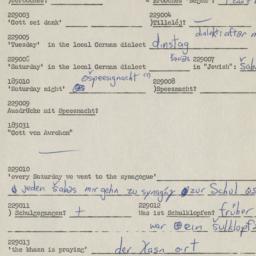 229003 229004
'Gott sei dank' )Tillelój?
229005
'Tuesday' in the local German dialect dinstag
229006 šabəs 229007
'Saturday' in the local German dialect in "Jewish":
185010 229008
'Saturday night' )Speesnacht?
229009
Ausdrücke mit Speesnacht?
185031
"Gott von Avrohom"
229010
'every Saturday we went to the synagogue'
jeden šabəs mir gehn zu synagog zur Schul
229011 229012
) Schulgegangen? + Was ist Schulklopfen? früher
war ein šulklopf
229013
'the khazn is praying' der Xasn ort